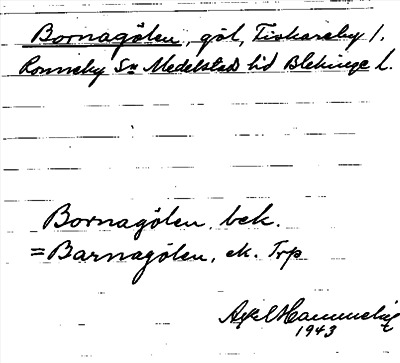 Bornagölen, göl, Fiskareby 1.
Ronneby Sn Medelstads hd Blekinge l.
Bornagölen, bek.
= Barnagölen, ek. Trp
Axel Hammelig
1943